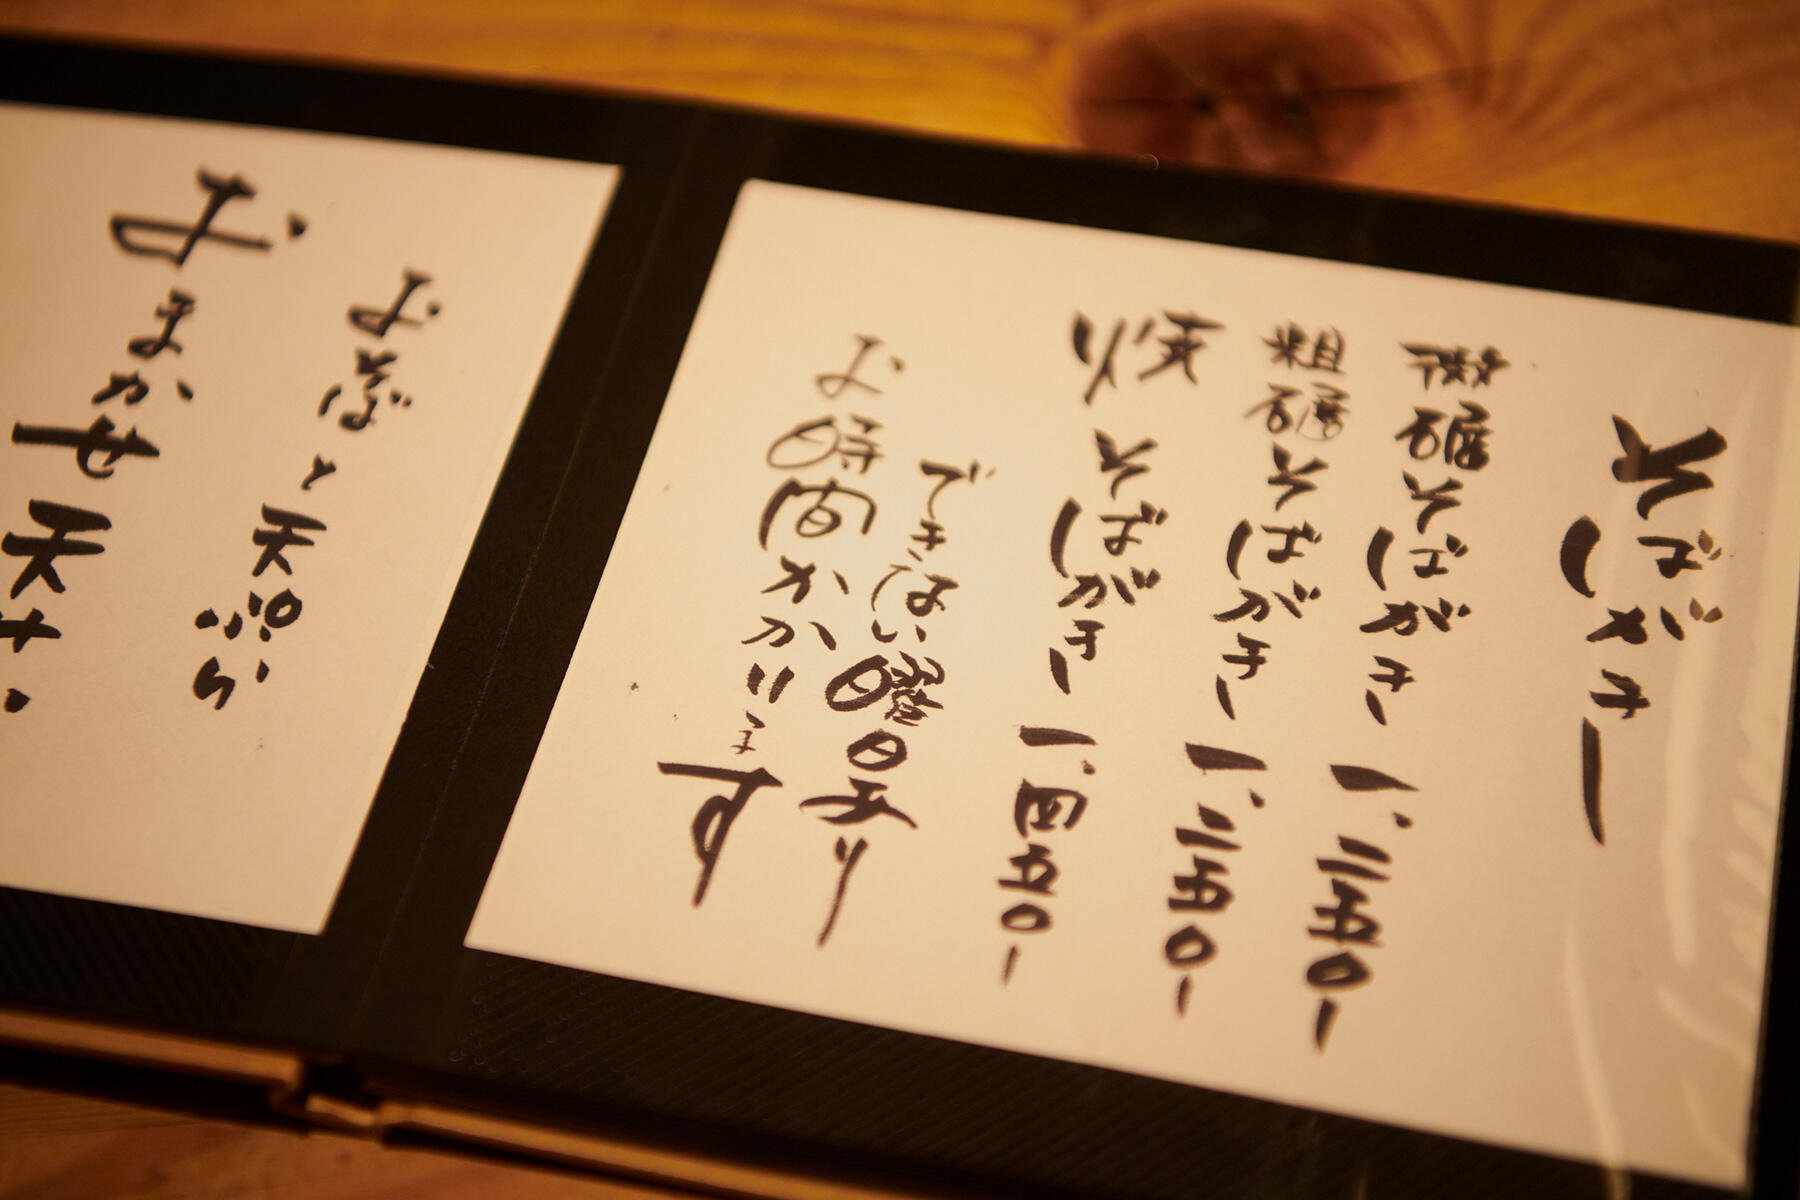 そばがきー
微碾そばがきー 一、二五〇ー
粗碾そばがきー 一、二五〇ー
焼そばがきー 一、四五〇ー
できない曜日あり
お時間かかります
おそばと天ぷら
おまかせ天せ